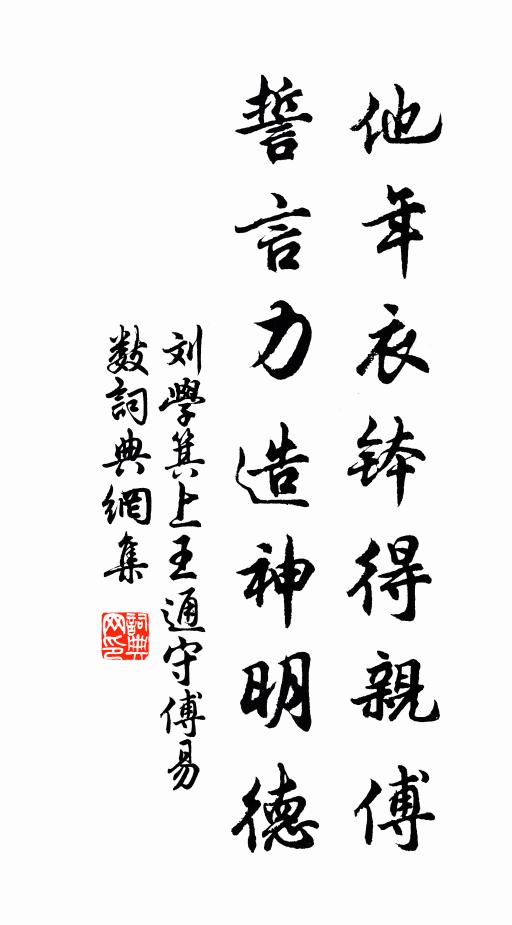 他年衣钵得親傅
誓言力造神明德
刘學箕上王通守傅易
數詞典網集
詞典网印